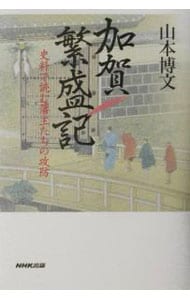 山本博文
加賀
繁盛記
史料で読む藩主たちの攻防
NHK出版